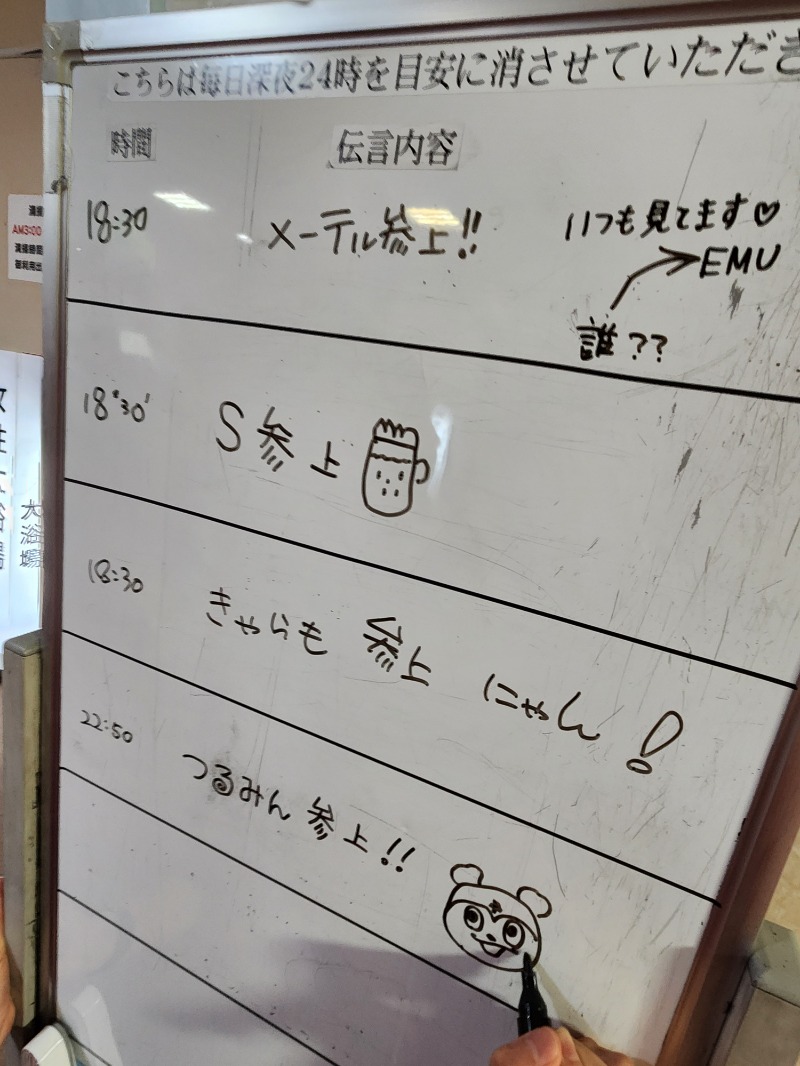 こちらは毎日深夜24時を目安に消させていただき
時間 伝言内容
18:30 メーテル参上!!
いつも見てます♡
EMU
誰??
18°30' S参上
18:30 きゃらも 参上 にゃん!
22:50 つるみん 参上!!
AM3:00
大浴場